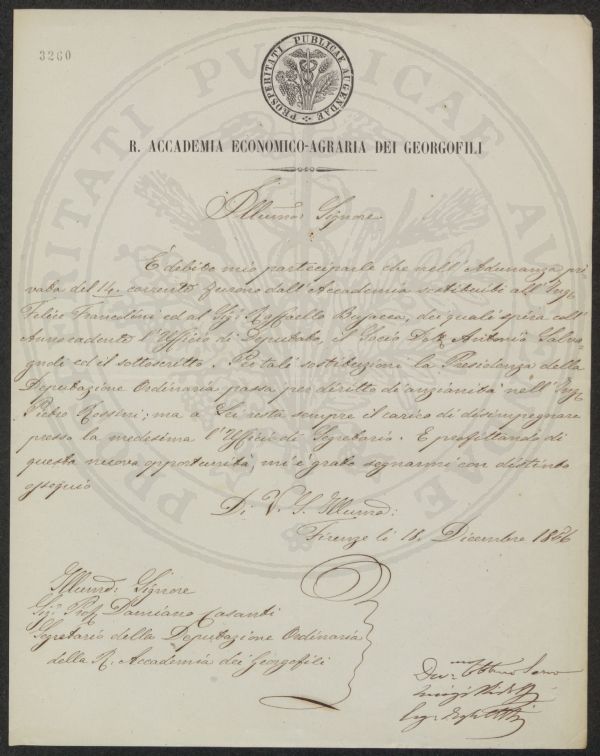 3260
PROSPERITATI PUBLICAE AUGENDAE
R. ACCADEMIA ECONOMICO-AGRARIA DEI GEORGOFILI
Illumo: Signore
È debito mio parteciparle che nell'Adunanza pri
vata del 14. corrente furono dall'Accademia sostituiti all'Ing.
Felice Francolini ed al Sig: Raffaello Busacca, dei quali spira coll'
Anno cadente l'Ufficio di Deputato, il Socio Dott. Antonio Salva
gnoli ed il sottoscritto. Per tali sostituzioni la Presidenza della
Deputazione Ordinaria passa per diritto di anzianità nell'Ing.
Pietro Rossini; ma a Lei resta sempre il carico di disimpegnare
presso la medesima l'Ufficio di Segretario. E profittando di
questa nuova opportunità mi è grato segnarmi con distinto
ossequio
Di V. S. Illuma:
Firenze li 18. Dicembre 1856
Illumo: Signore
Sig: Prof. Damiano Casanti
Segretario della Deputazione Ordinaria
della R. Accademia dei Georgofili
Devmo Obbmo Servo
Luigi